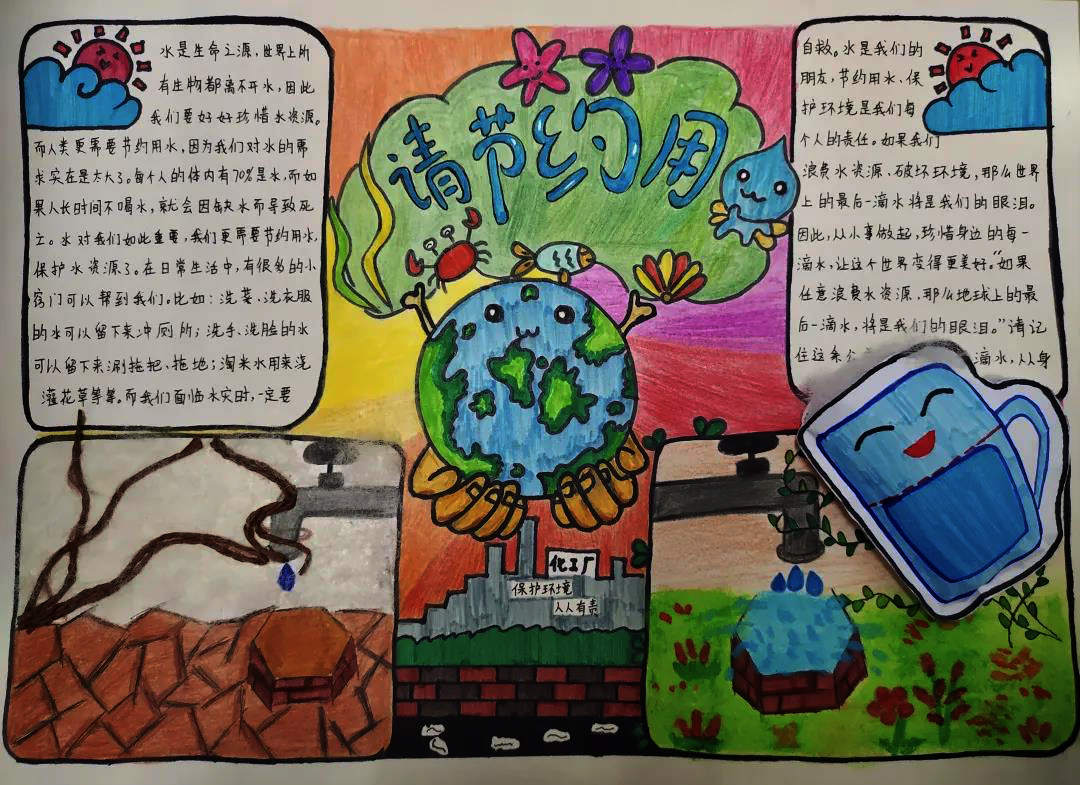 水是生命之源,世界上所
有生物都离不开水,因此
我们要好好珍惜水资源。
而人类更需要节约用水,因为我们对水的需
求实在是太大了。每个人的体内有70%是水,而如
果人长时间不喝水,就会因缺水而导致死
亡。水对我们如此重要,我们更需要节约用水,
保护水资源了。在日常生活中,有很多的小
窍门可以帮到我们。比如:洗菜、洗衣服
的水可以留下来冲厕所;洗手、洗脸的水
可以留下来涮拖把、拖地;淘米水用来浇
灌花草等等。而我们面临水灾时,一定要
请节约用
自救。水是我们的
朋友,节约用水、保
护环境是我们每
个人的责任。如果我们
浪费水资源、破坏环境,那么世界
上的最后一滴水将是我们的眼泪。
因此,从小事做起,珍惜身边的每一
滴水,让这个世界变得更美好。“如果
任意浪费水资源,那么地球上的最
后一滴水,将是我们的眼泪。”请记
住这
滴水,从身
化工厂
保护环境
人人有责